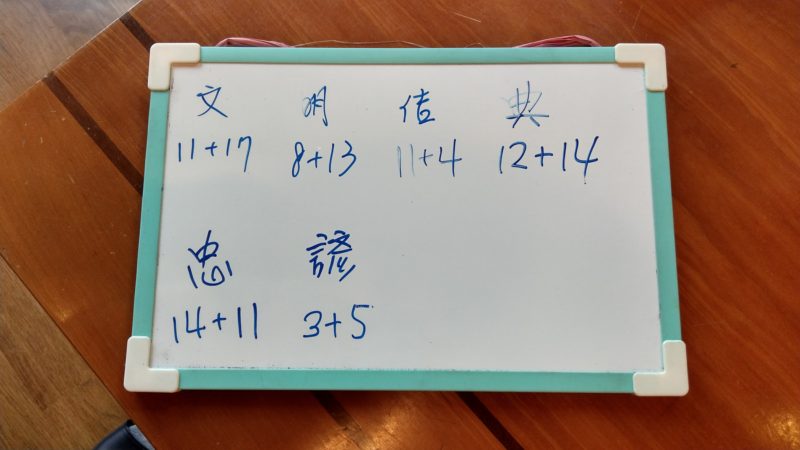 文 明 佶 典
11+17 8+13 11+4 12+14
忠 諺
14+11 3+5